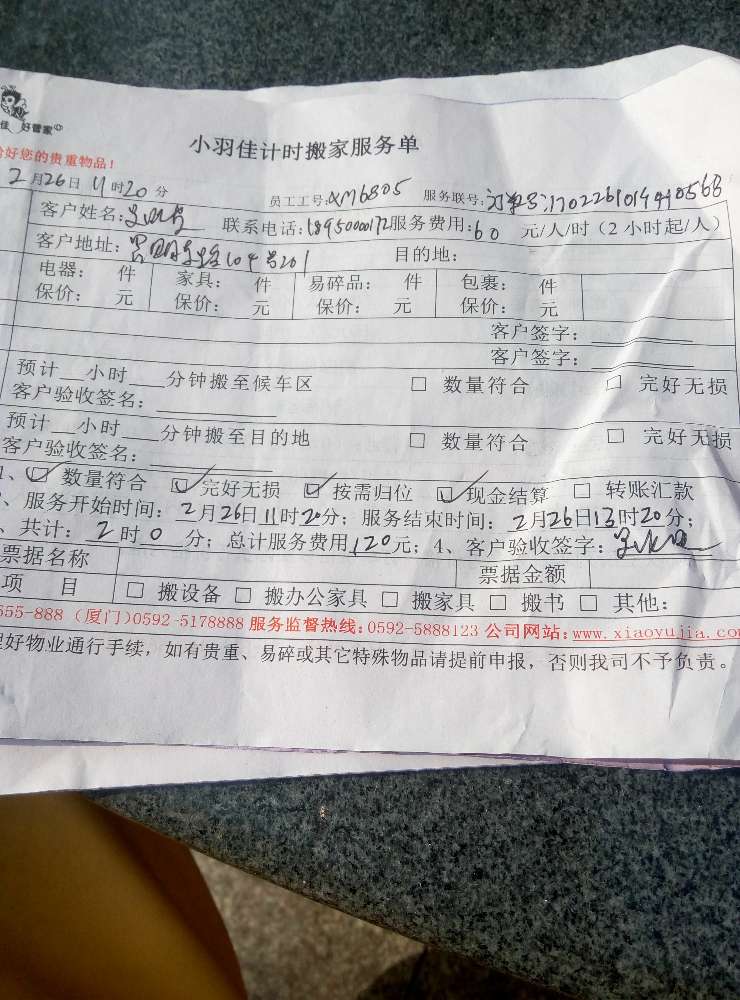 佳 好管家
好您的贵重物品！
小羽佳计时搬家服务单
2月26日 11时20分 员工工号：XM6805 服务联号：
客户姓名： 联系电话：18950000172 服务费用：60 元/人/时（2小时起/人）
客户地址： 目的地：
电器： 件 家具： 件 易碎品： 件 包裹： 件
保价： 元 保价： 元 保价： 元 保价： 元
客户签字：
客户签字：
预计__小时__分钟搬至候车区 □ 数量符合 □ 完好无损
客户验收签名：
预计__小时__分钟搬至目的地 □ 数量符合 □ 完好无损
客户验收签名：
、☑ 数量符合 ☑ 完好无损 ☑ 按需归位 ☑ 现金结算 □ 转账汇款
、服务开始时间：2月26日11时20分；服务结束时间：2月26日13时20分；
、共计：2时0分；总计服务费用120元；4、客户验收签字：
票据名称 票据金额
项 目 □ 搬设备 □ 搬办公家具 □ 搬家具 □ 搬书 □ 其他：
555-888（厦门）0592-5178888 服务监督热线：0592-5888123 公司网站：www.xiaoyujia.com
好物业通行手续，如有贵重、易碎或其它特殊物品请提前申报，否则我司不予负责。